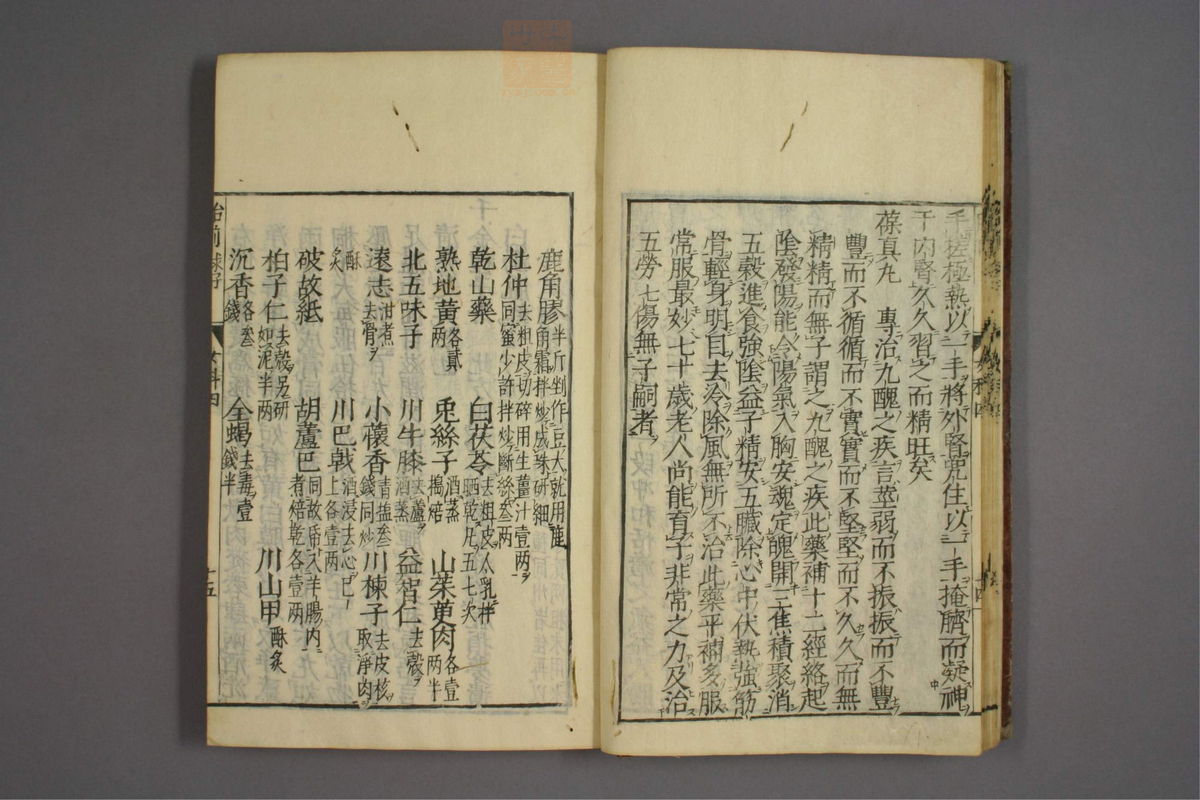 手搓極熱以一手將外腎兠住以一手掩臍而凝神
于内腎久久習之而精旺矣
葆真丸　專治九醜之疾言莖弱而不振振而不豐
豐而不循循而不實實而不堅堅而不久久而無
精精而無子謂之九醜之疾此藥補十二經絡起
陰發陽能令陽氣入胸安魂定魄開三焦積聚消
五穀進食強陰益子精安五臟除心中伏熱強筋
骨輕身明目去冷除風無所不治此藥平補多服
常服最妙七十歲老人尚能育子非常之力及治
五勞七傷無子嗣者
鹿角膠半斤剉作豆大就用鹿角霜拌炒成珠研細
杜仲去粗皮切碎用生薑汁壹兩同蜜少許拌炒斷絲叁兩
乾山藥　白茯苓去粗皮人乳拌晒乾凡五七次
熟地黃各貳兩　兎絲子酒蒸搗焙　山茱萸肉各壹兩半
北五味子　川牛膝去蘆酒蒸　益智仁去殼
遠志泔煮去骨　小茴香青塩叁錢同炒　川楝子取淨肉去皮核
酥炙　川巴戟酒浸去心已上各壹兩
破故紙　胡蘆巴同故帋入羊腸内煮焙乾各壹兩
柏子仁去殼另研如泥半兩　川山甲酥炙
沉香各叁錢　全蝎去毒壹錢半
胎前
女科四
十五